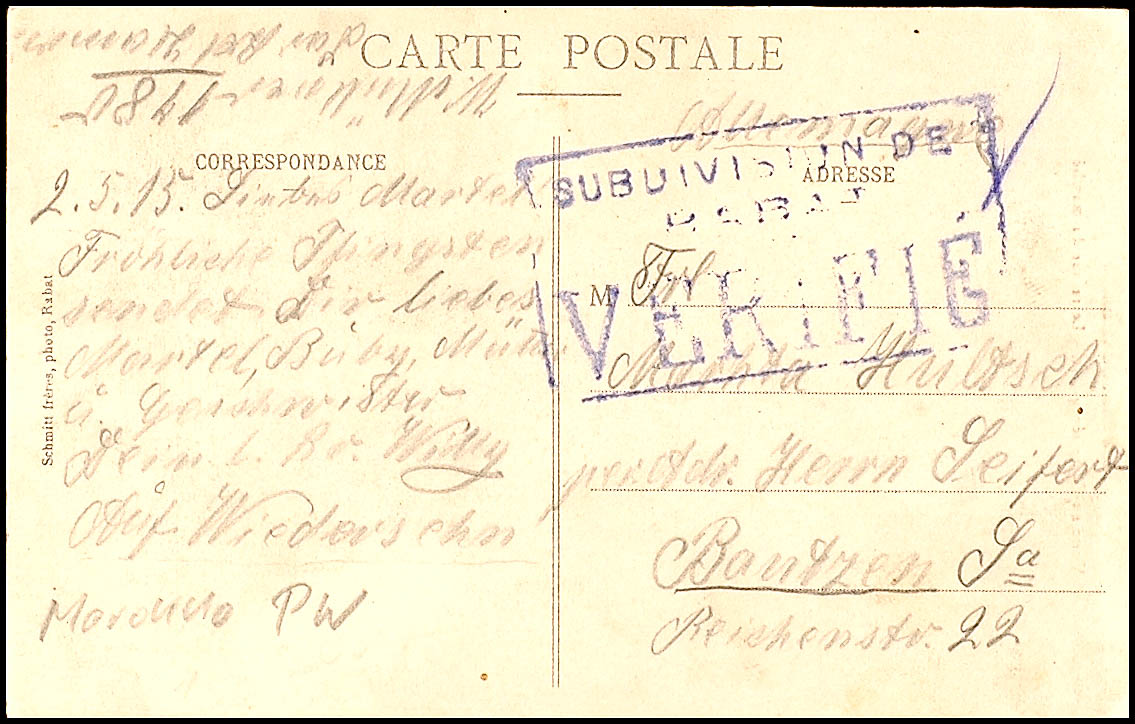 CARTE POSTALE
1481
Allemagne
CORRESPONDANCE
ADRESSE
SUBDIVISION DE
RABAT
VÉRIFIÉ
2.5.15. Liebes Martel
Fröhliche Pfingsten
sendet Dir liebes
Martel, Buby,
u. Geschwister
Dein l. Br. Willy
Auf Wiedersehn
PW
M Frl.
Martha Hultsch
per Adr. Herrn Seifert
Bautzen Sa
Reichenstr. 22
Schmitt frères, photo, Rabat